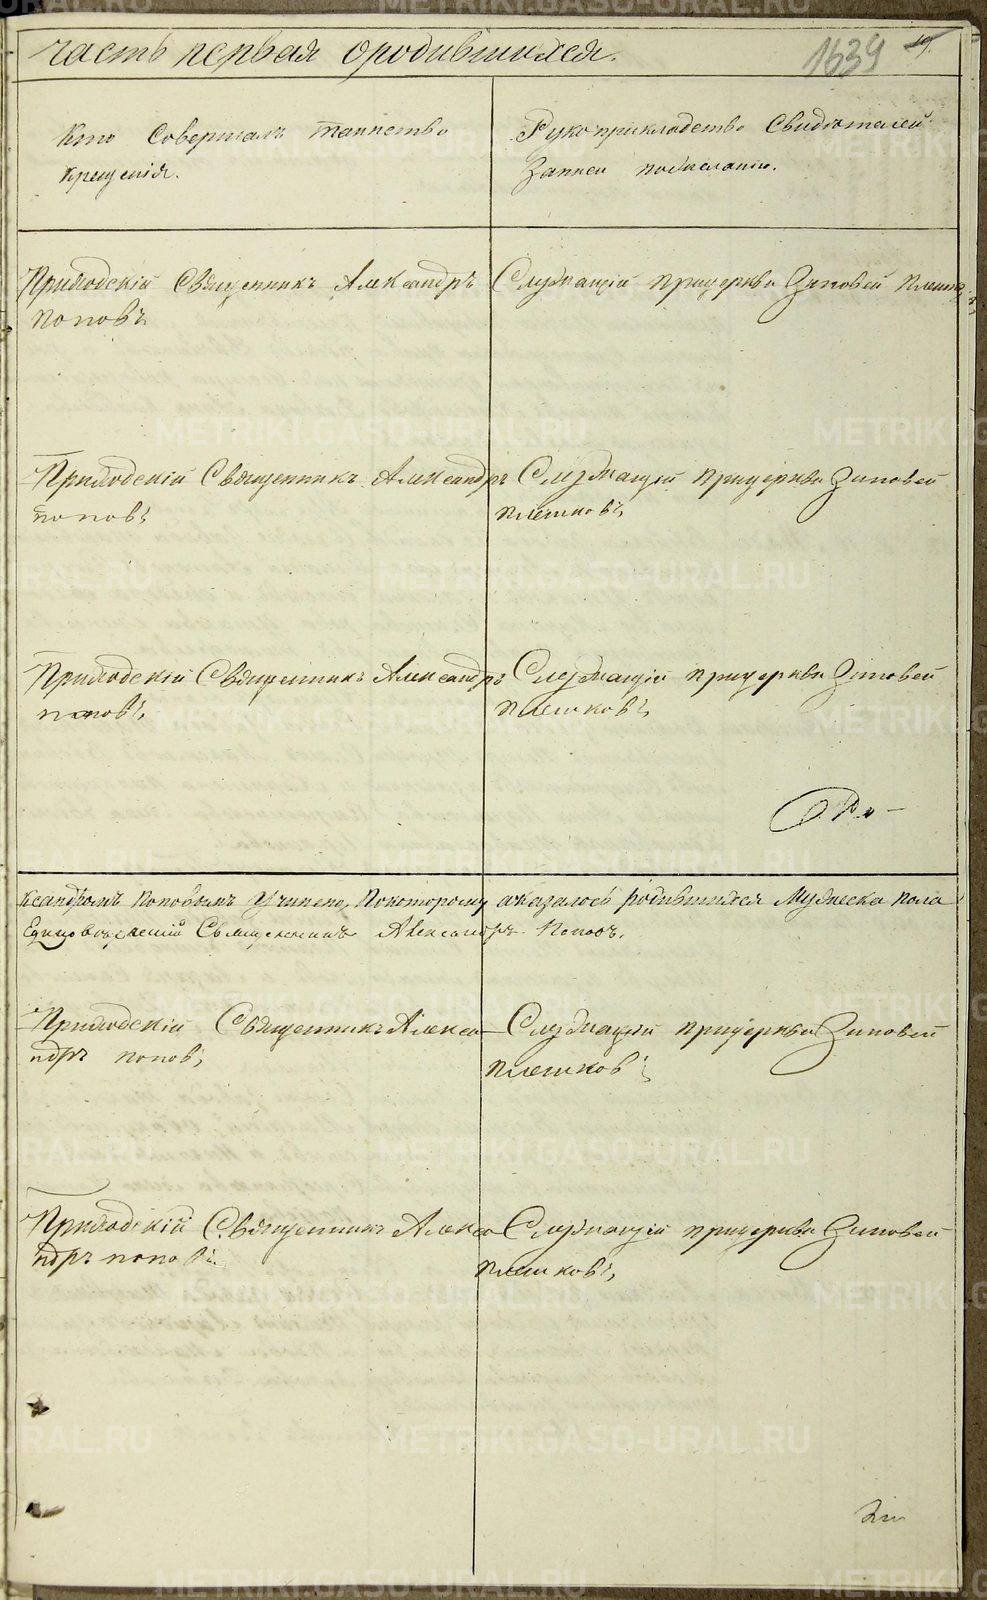 часть первая ородившихся.
1639
Кто Совершалъ таинство
крещенія.
Рукоприкладство Свидѣтелей
Записи пожеланію.
Приходскій Священникъ Александръ
Поповъ
Служащій прицеркви Зиновей Плешк
Приходскій Священникъ Александръ
поповъ
Служащій прицеркви Зиновей
плешковъ
Приходскій Священникъ Александръ
поповъ
Служащій прицеркви Зиновей
плешковъ
ксандромъ Поповымъ Учинено, Покоторому аказалось родившихся Мужеска пола
Единовѣрческій Священникъ Александръ Поповъ.
Приходскій Священникъ Алекса
ндръ попов
Служащій прицеркви Зиновей
плешков
Приходскій Священникъ Алекса
ндръ поповъ
Служащій прицеркви Зиновей
плешковъ
METRIKI.GASO-URAL.RU